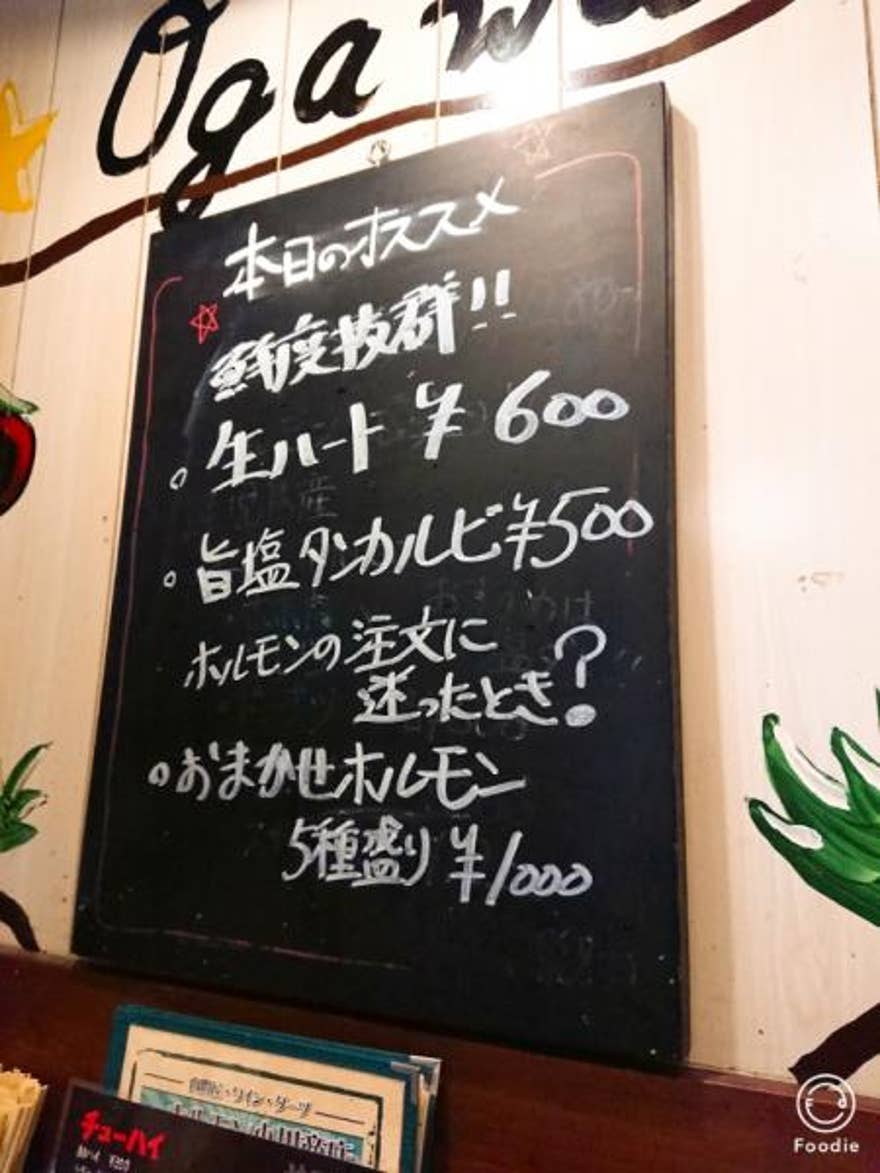 Ogawa
本日のオススメ
鮮度抜群!!
。生ハート ¥600
。旨塩タンカルビ ¥500
ホルモンの注文に
迷ったとき?
。おまかせホルモン
5種盛り ¥1000
チューハイ
Foodie